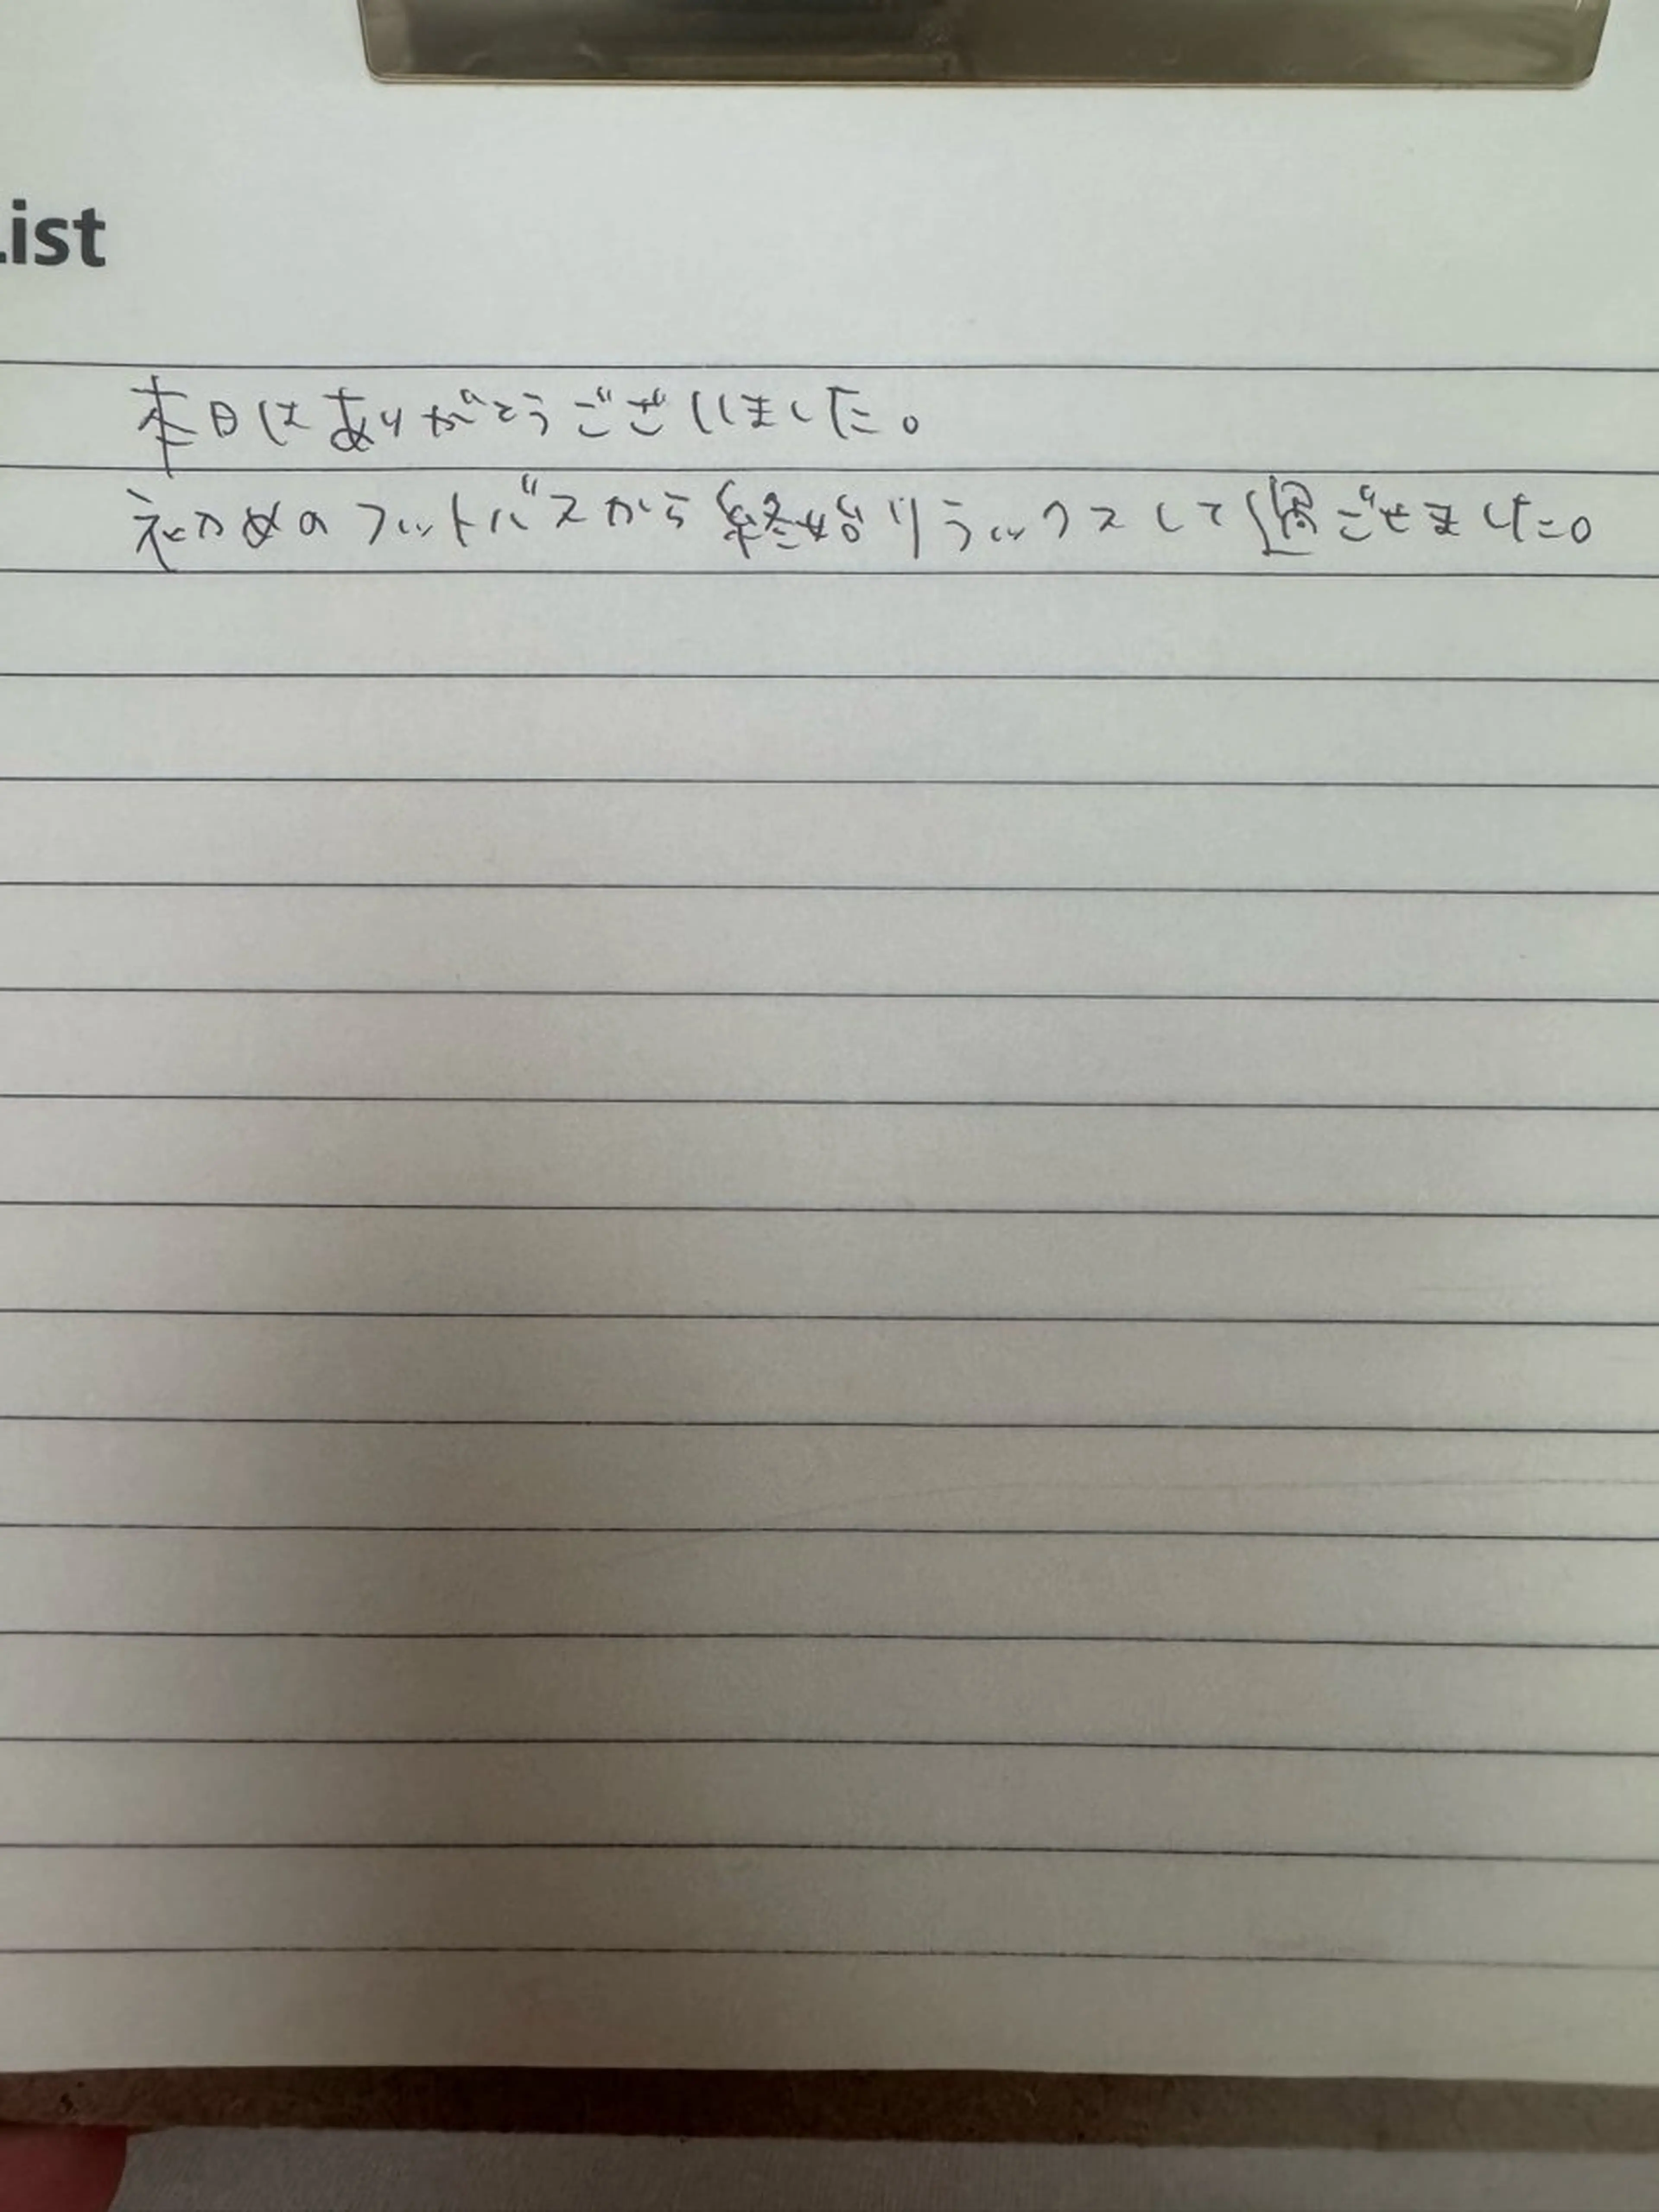 List
本日はありがとうございました。
初めのフットバスから終始リラックスして過ごせました。